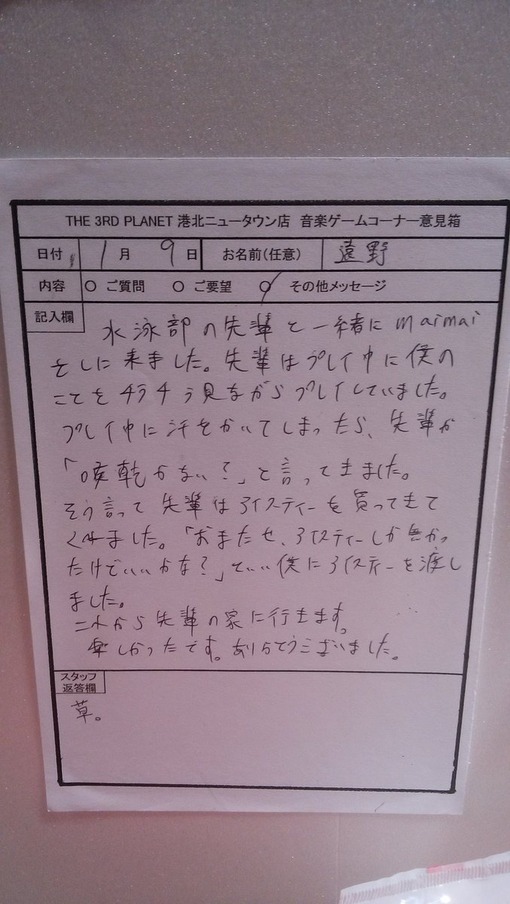 THE 3RD PLANET 港北ニュータウン店 音楽ゲームコーナー意見箱
日付 1 月 9 日 お名前(任意) 遠野
内容 ○ ご質問 ○ ご要望 ○ その他メッセージ
記入欄
水泳部の先輩と一緒にmaimai
をしに来ました。先輩はプレイ中に僕の
ことをチラチラ見ながらプレイしていました。
プレイ中に汗をかいてしまったら、先輩が
「喉乾かない?」と言ってきました。
そう言って先輩はアイスティーを買ってきて
くれました。「おまたせ、アイスティーしか無かっ
たけどいいかな?」でいい僕にアイスティーを渡し
ました。
これから先輩の家に行きます。
楽しかったです。ありがとうございました。
スタッフ
返答欄
草。